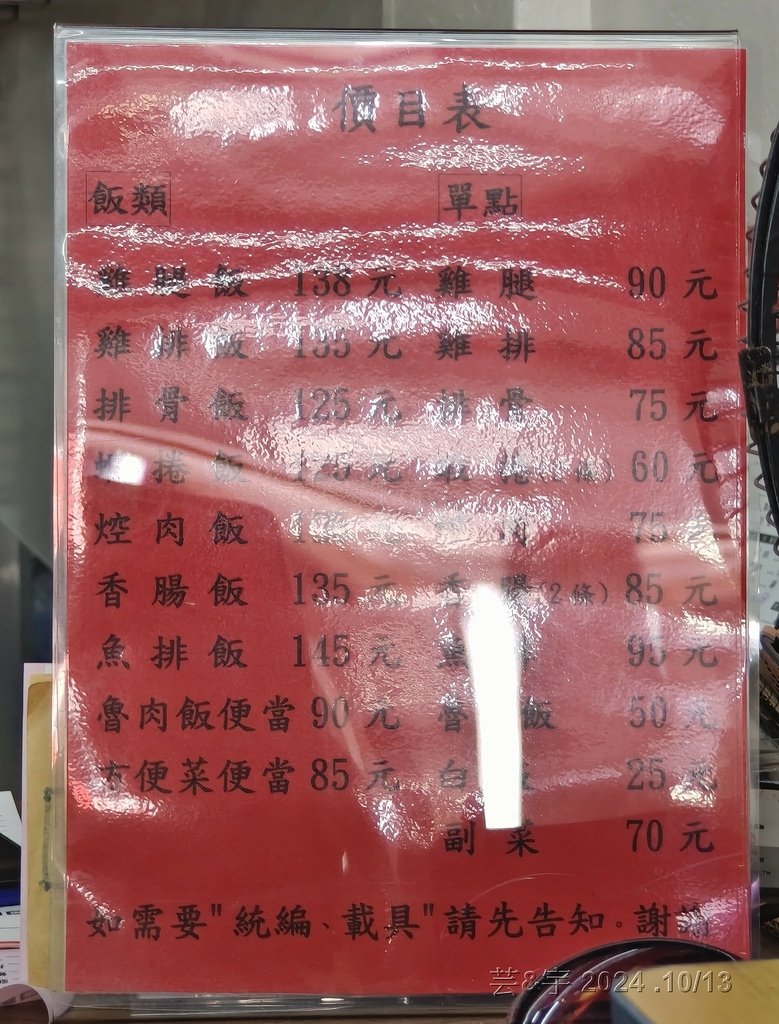 價目表
飯類 單點
雞腿飯 138元 雞腿 90元
雞排飯 135元 雞排 85元
排骨飯 125元 排骨 75元
捲飯 125元 蝦捲 60元
焢肉飯 元 肉 75元
香腸飯 135元 香腸(2條) 85元
魚排飯 145元 魚排 95元
魯肉飯便當 90元 魯飯 50元
方便菜便當 85元 白飯 25元
副菜 70元
如需要"統編、載具"請先告知。謝謝
芸&宇 2024 .10/13